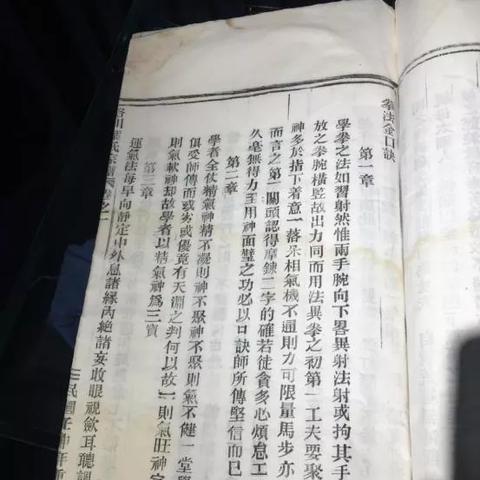 拳法金口訣
第一章
學拳之法如習射然惟兩手腕向下畧異射法射或拘其手
放之拳腕橫竪故出力同而用法異拳之初第一工夫要聚
神多於指下着意一落呆相氣機不通則力可限量馬步亦
而言之第一關頭認得摩鍊二字的確若徒貪多心煩息工
久毫無得力王用神面壁之功必以口訣師所傳堅信而已
第二章
學者全仗精氣神精不凝則神不聚神不聚則氣不健一堂學
俱受師傳而或劣或優竟有天淵之判何以故一則氣旺神
則氣軟神却故學者以精氣神爲三寶
第三章
運氣法每早向靜定中外息諸緣內絕諸妄收眼視斂耳聽調
民國壬申年